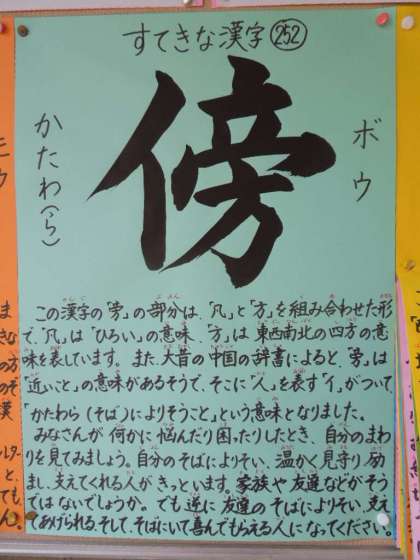 すてきな漢字 252
傍
ボウ
かたわ(ら)
この漢字の「旁」の部分は、「凡」と「方」を組み合わせた形
で、「凡」は「ひろい」の意味、「方」は東西南北の四方の意
味を表しています。また、大昔の中国の辞書によると、「旁」は
「近いこと」の意味があるそうで、そこに「人」を表す「亻」がついて、
「かたわら（そば）によりそうこと」という意味となりました。
みなさんが何かに悩んだり困ったりしたとき、自分のまわ
りを見てみましょう。自分のそばによりそい、温かく見守り励
まし、支えてくれる人がきっといます。家族や友達などがそう
ではないでしょうか。でも逆に友達のそばによりそい、支え
てあげられる、そして、そばにいて喜んでもらえる人になってください。